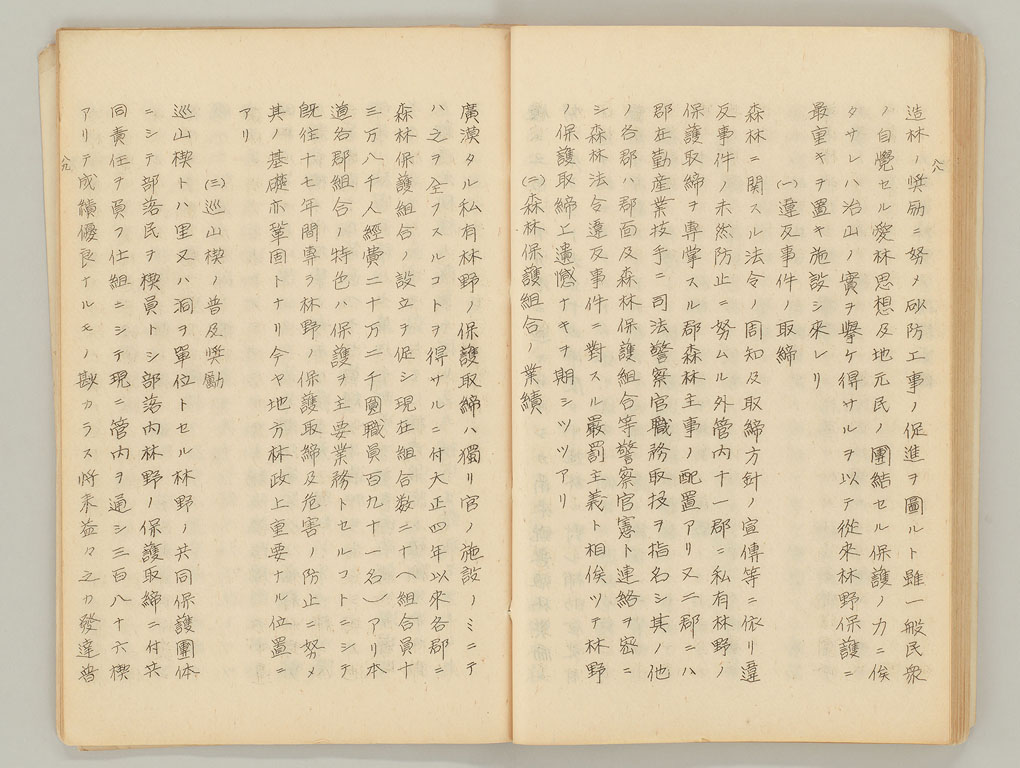 八八
造林ノ奬励ニ努メ砂防工事ノ促進ヲ圖ルト雖一般民衆
ノ自覺セル愛林思想及地元民ノ團結セル保護ノ力ニ俟
タサレハ治山ノ實ヲ擧ケ得サルヲ以テ從來林野保護ニ
最重キヲ置キ施設シ來レリ
(一)違反事件ノ取締
森林ニ関スル法令ノ周知及取締方針ノ宣傳等ニ依リ違
反事件ノ未然防止ニ努ムル外管内十一郡ニ私有林野ノ
保護取締ヲ專掌スル郡森林主事ノ配置アリ又二郡ニハ
郡在勤産業技手ニ司法警察官職務取扱ヲ指名シ其ノ他
ノ各郡ハ郡面及森林保護組合等警察官憲ト連絡ヲ密ニ
シ森林法令違反事件ニ對スル嚴罰主義ト相俟ツテ林野
ノ保護取締上遺憾ナキヲ期シツツアリ
(二)森林保護組合ノ業績
廣漠タル私有林野ノ保護取締ハ獨リ官ノ施設ノミニテ
ハ之ヲ全フスルコトヲ得サルニ付大正四年以來各郡ニ
森林保護組合ノ設立ヲ促シ現在組合数二十(組合員十
三万八千人經費二十万二千圓職員百九十一名)アリ本
道各郡組合ノ特色ハ保護ヲ主要業務トセルコトニシテ
既往十七年間專ラ林野ノ保護取締及危害ノ防止ニ努メ
其ノ基礎亦鞏固トナリ今ヤ地方林政上重要ナル位置ニ
アリ
(三)巡山楔ノ普及奬勵
巡山楔トハ里又ハ洞ヲ單位トセル林野ノ共同保護團体
ニシテ部落民ヲ楔員トシ部落内林野ノ保護取締ニ付共
同責任ヲ員フ仕組ニシテ現ニ管内ヲ通シ三百八十六楔
アリテ成績優良ナルモノ尠カラス將来益々之カ發達普
八九